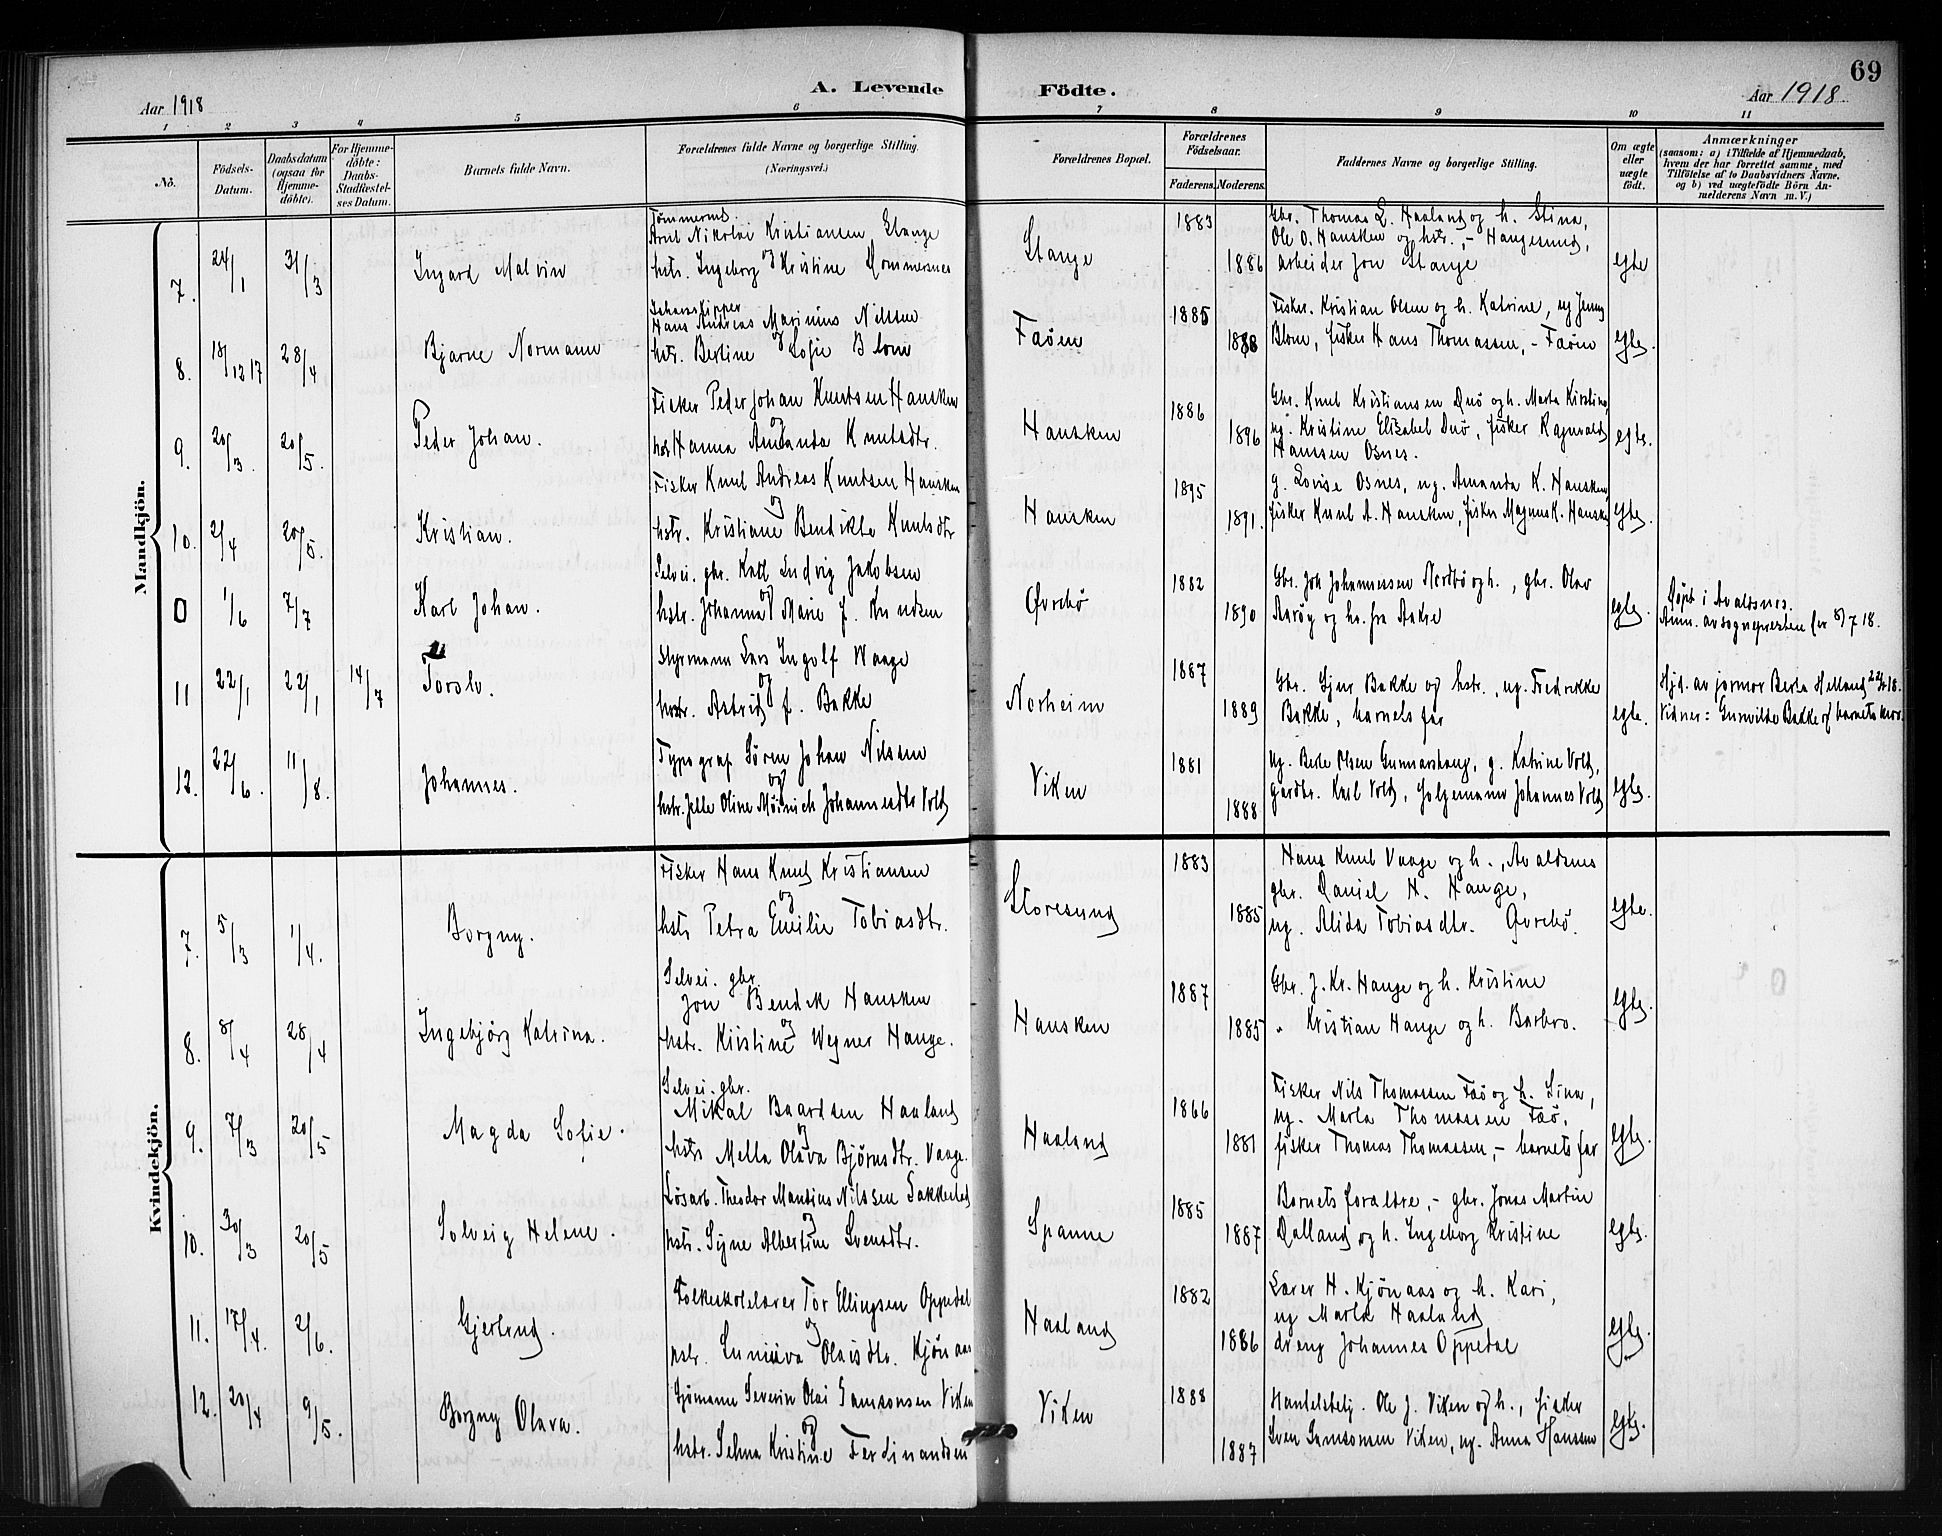 69
A. Levende Födte.
Aar 1918
Aar 1918
1 2 3 4 5 6 7 8 9 10 11
No.
Födsels-Datum.
Daabsdatum (ogsaa for Hjemme-döbte).
For Hjemme-döbte: Daabs-Stadfæstel-ses Datum.
Barnets fulde Navn.
Forældrenes fulde Navne og borgerlige Stilling. (Næringsvei.)
Forældrenes Bopæl.
Forældrenes Födselsaar.
Faderens. Moderens.
Faddernes Navne og borgerlige Stilling.
Om ægte eller uægte födt.
Anmærkninger
(saasom: a) i Tilfælde af Hjemmedaab, hvem der har forrettet samme, med Tilföielse af to Daabsvidners Navne, og b) ved uægtefödte Börn An-melderens Navn m. V.)
Mandkjön.
7. 24/1 31/3 Ingard Malvin
Tömmerm.
Nikolai Kristiansen Stange
og
hstr. Ingeborg Kristine Dommersnes
Stange 1883 1886
Gbr. Thomas L. Haaland og h. Stina,
Ole O. Hausken og hstr., - Haugesund,
arbeider Jon Stange
egte
8. 18/12 17 28/4 Bjarne Normann
Hans Andreas Marinius Nilsen
og
hstr. Bertine Sofie Blom
Faöen 1885 1888
Fisker. Kristian Olsen og h. Katrine, ug Jenny
Blom, fisker Hans Thomassen, - Faöen
egte.
9. 20/3. 20/5. Peder Johan.
Fisker Peder Johan Knutsen Hausken
og
Hanna Amanda Knutsdtr.
Hausken 1886 1896
Gbr. Knut Kristiansen Duö og h. Marta Kirstina,
ug. Kristine Elisabet Duö, fisker Ragnvald
Hanssen Osnes.
egte.
10. 2/4 20/5. Kristian.
Fisker Knut Andreas Knudsen Hausken
og
hstr. Kristiane Bendikte Knutsdtr
Hausken 1895 1891.
g. Lovise Osnes, ug. Amanda K. Hausken,
fisker Knut A. Hausken, fisker Magnus K. Hausken
egte.
0 1/6 7/7 Karl Johan.
Selvei. gbr. Karl Ludvig Jakobsen
og
hstr. Johanna Marie f. Knudsen
Øvrebö 1882 1890
Gbr. Joh Johannessen Nordbö og h., gbr. Olav
Aaröy og hs. fra Aakre
egte.
Døpt i Avaldsnes.
Anm. av sognepresten for 8/7 18.
11 22/1 22/1 14/7 Torolv.
Styrmann Lars Ingolf Waage
og
hstr. Astrid f. Bakke
Norheim 1887 1889
Gbr. Sjur Bakke og hstr., ug. Fredrikke
Bakke, barnets far
egte.
Hjd. av jormor Berta Helland 22/1 18.
Vidner: Gunvilde Bakke og barnets mor.
12. 22/6. 11/8. Johannes.
Typograf Sören Johan Nilssen
og
hstr. Jelle Oline Möinich Johannesdtr Vold
Viken 1881 1888
Ug. Berte Olsen Gunnarshaug, g. Katrine Vold,
gardbr. Karl Vold, Johannes Vold
egte.
Kvindekjön.
7. 5/3 1/4. Borgny.
Fisker Hans Knut Kristiansen
og
hstr Petra Emilie Tobiasdtr.
Storesund 1883 1885
Hans Knut Vaage og h., Avaldsnes
gbr. Daniel H. Hauge,
ug. Alida Tobiasdtr. Øvrebö.
egte.
8. 8/4 28/4 Ingebjörg Katrina.
Selvei. gbr.
Jon Bendik Hausken
og
hstr. Kristine Wegner Hauge.
Hausken 1887 1885
Gbr. J. Kr. Hauge og h. Kristine
" Kristian Hauge og h. Barbro.
egte.
9. 7/3 20/5 Magda Sofie.
Selvei. gbr.
Mikal Baardsen Haaland
og
hstr Mella Olava Björnsdtr. Vaage.
Haaland 1866 1881
Fisker Nils Thomassen Faö og h. Sina,
ug. Marta Thomassen Faö,
fisker Thomas Thomassen, - barnets far
egte.
10. 30/3 20/5 Solveig Helene.
Lösarb. Theodor Mandius Nilssen Sakkestad
og
hstr. Syne Albertine Svensdtr.
Spanne 1885 1887
Barnets foreldre, - gbr. Jonas Martin
Dalland og h. Ingeborg Kristine
egte.
11. 17/4. 2/6. Gjertrud.
Folkeskolelærer Tor Ellingsen Oppedal
og
hstr. Sunniva Olaisdtr. Kjönaas
Haaland 1882 1886
Lærer H. Kjönaas og h. Kari,
ug Marta Haaland
dreng Johannes Oppedal
egte.
12. 20/4 9/5. Borgny Olava.
Sjömann Severin Olai Samsonsen Viken
og
hstr. Selma Kristine Ferdinandsen
Viken 1888 1887
Handelsbetj. Ole J. Viken og h., fisker
Sven Samsonsen Viken, ug. Anna Hanssen
egte.